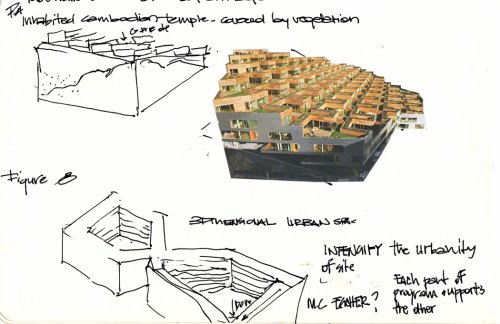 Inhabited cambodian temple - covered by vegetation
Figure 8
3 dimensional urban
INTENSIFY the urbanity
of site
M.C. ESCHER?
Each part of
program supports
the other